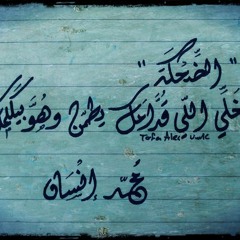 " الضِّحكة "
خَلِّي اللّي قُدَّامَك يطمن وهُوَّ بيكلمك
مُحمّد إنْسَان